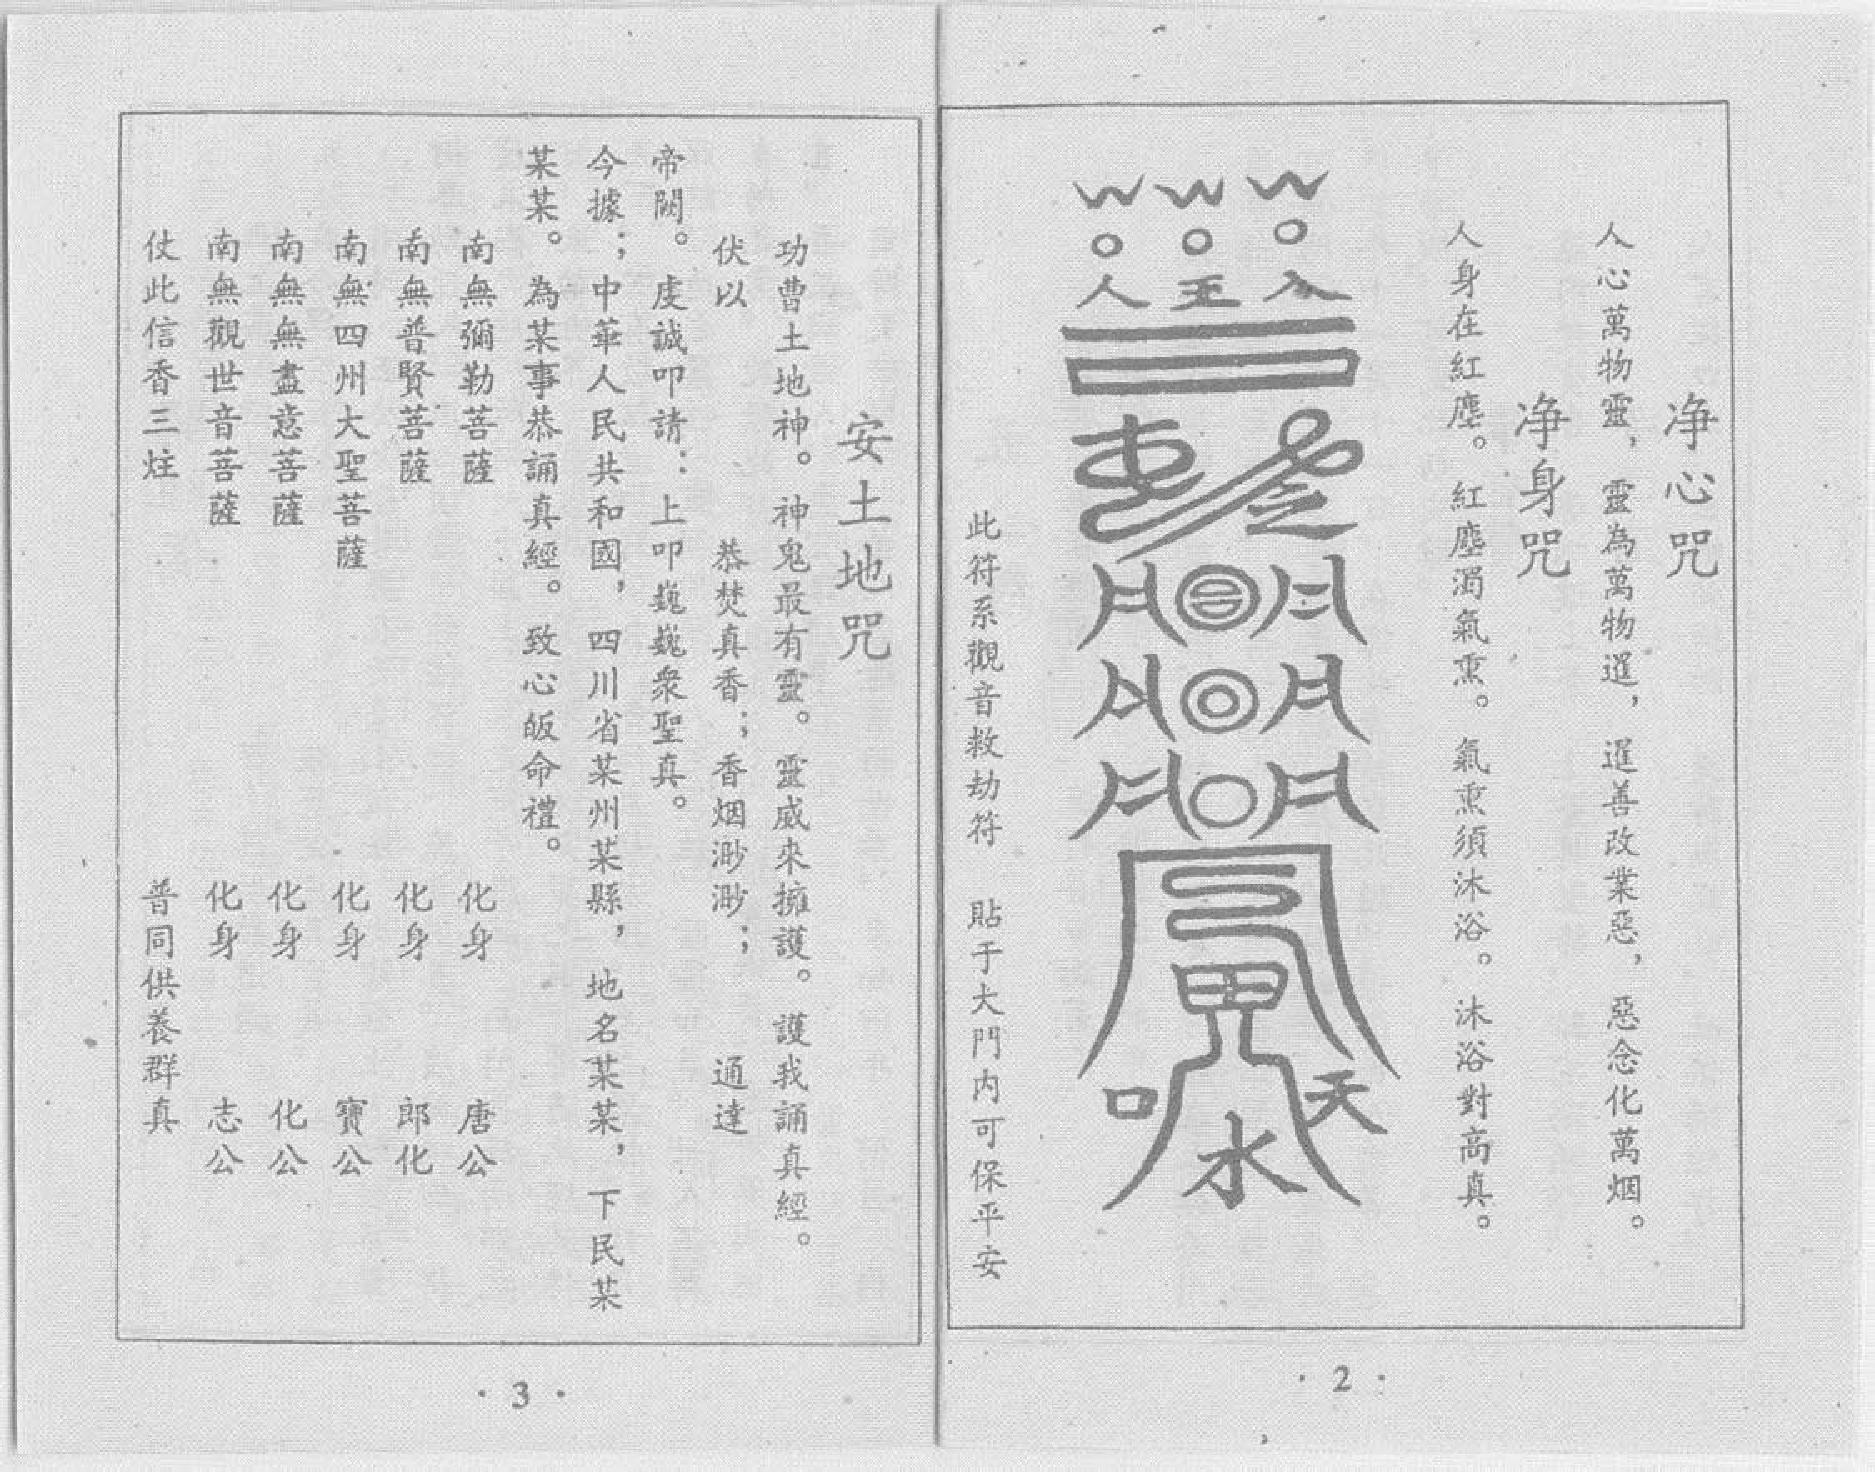 净心咒
人心萬物靈，靈為萬物選，選善改業惡，惡念化萬烟。
净身咒
人身在紅塵。紅塵濁氣熏。氣熏須沐浴。沐浴對高真。
此符系觀音救劫符　貼于大門内可保平安
· 2 ·
安土地咒
功曹土地神。神鬼最有靈。靈威來擁護。護我誦真經。
伏以　恭焚真香；香烟渺渺；　通達
帝闕。虔誠叩請：上叩巍巍衆聖真。
今據；中華人民共和國，四川省某州某縣，地名某某，下民某
某某。為某事恭誦真經。致心皈命禮。
南無彌勒菩薩　化身　唐公
南無普賢菩薩　化身　郎化
南無四州大聖菩薩　化身　寶公
南無無盡意菩薩　化身　化公
南無觀世音菩薩　化身　志公
仗此信香三炷　普同供養群真
· 3 ·